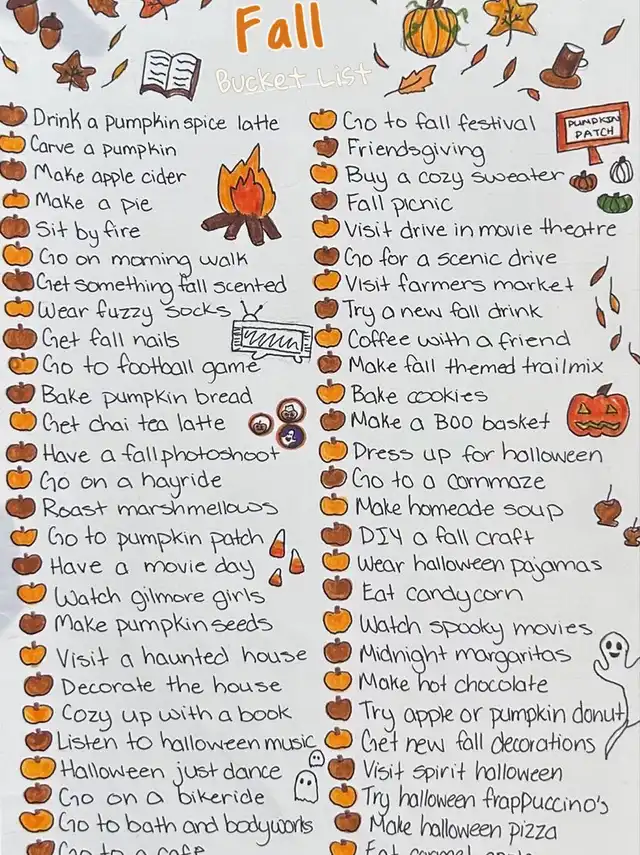 Fall
Bucket List
Drink a pumpkin spice latte
Carve a pumpkin
Make apple cider
Make a pie
Sit by fire
Go on morning walk
Get something fall scented
Wear fuzzy socks
Get fall nails
Go to football game
Bake pumpkin bread
Get chai tea latte
Have a fall photoshoot
Go on a hayride
Roast marshmellows
Go to pumpkin patch
Have a movie day
Watch gilmore girls
Make pumpkin seeds
Visit a haunted house
Decorate the house
Cozy up with a book
Listen to halloween music
Halloween just dance
Go on a bikeride
Go to bath and bodyworks
Go to a cafe
Go to fall festival
Friendsgiving
Buy a cozy sweater
Fall picnic
Visit drive in movie theatre
Go for a scenic drive
Visit farmers market
Try a new fall drink
Coffee with a friend
Make fall themed trailmix
Bake cookies
Make a BOO basket
Dress up for halloween
Go to a cornmaze
Make homeade soup
DIY a fall craft
Wear halloween pajamas
Eat candycorn
Watch spooky movies
Midnight margaritas
Make hot chocolate
Try apple or pumpkin donut
Get new fall decorations
Visit spirit halloween
Try halloween frappuccino's
Make halloween pizza
Eat caramel apple
PUMPKIN
PATCH